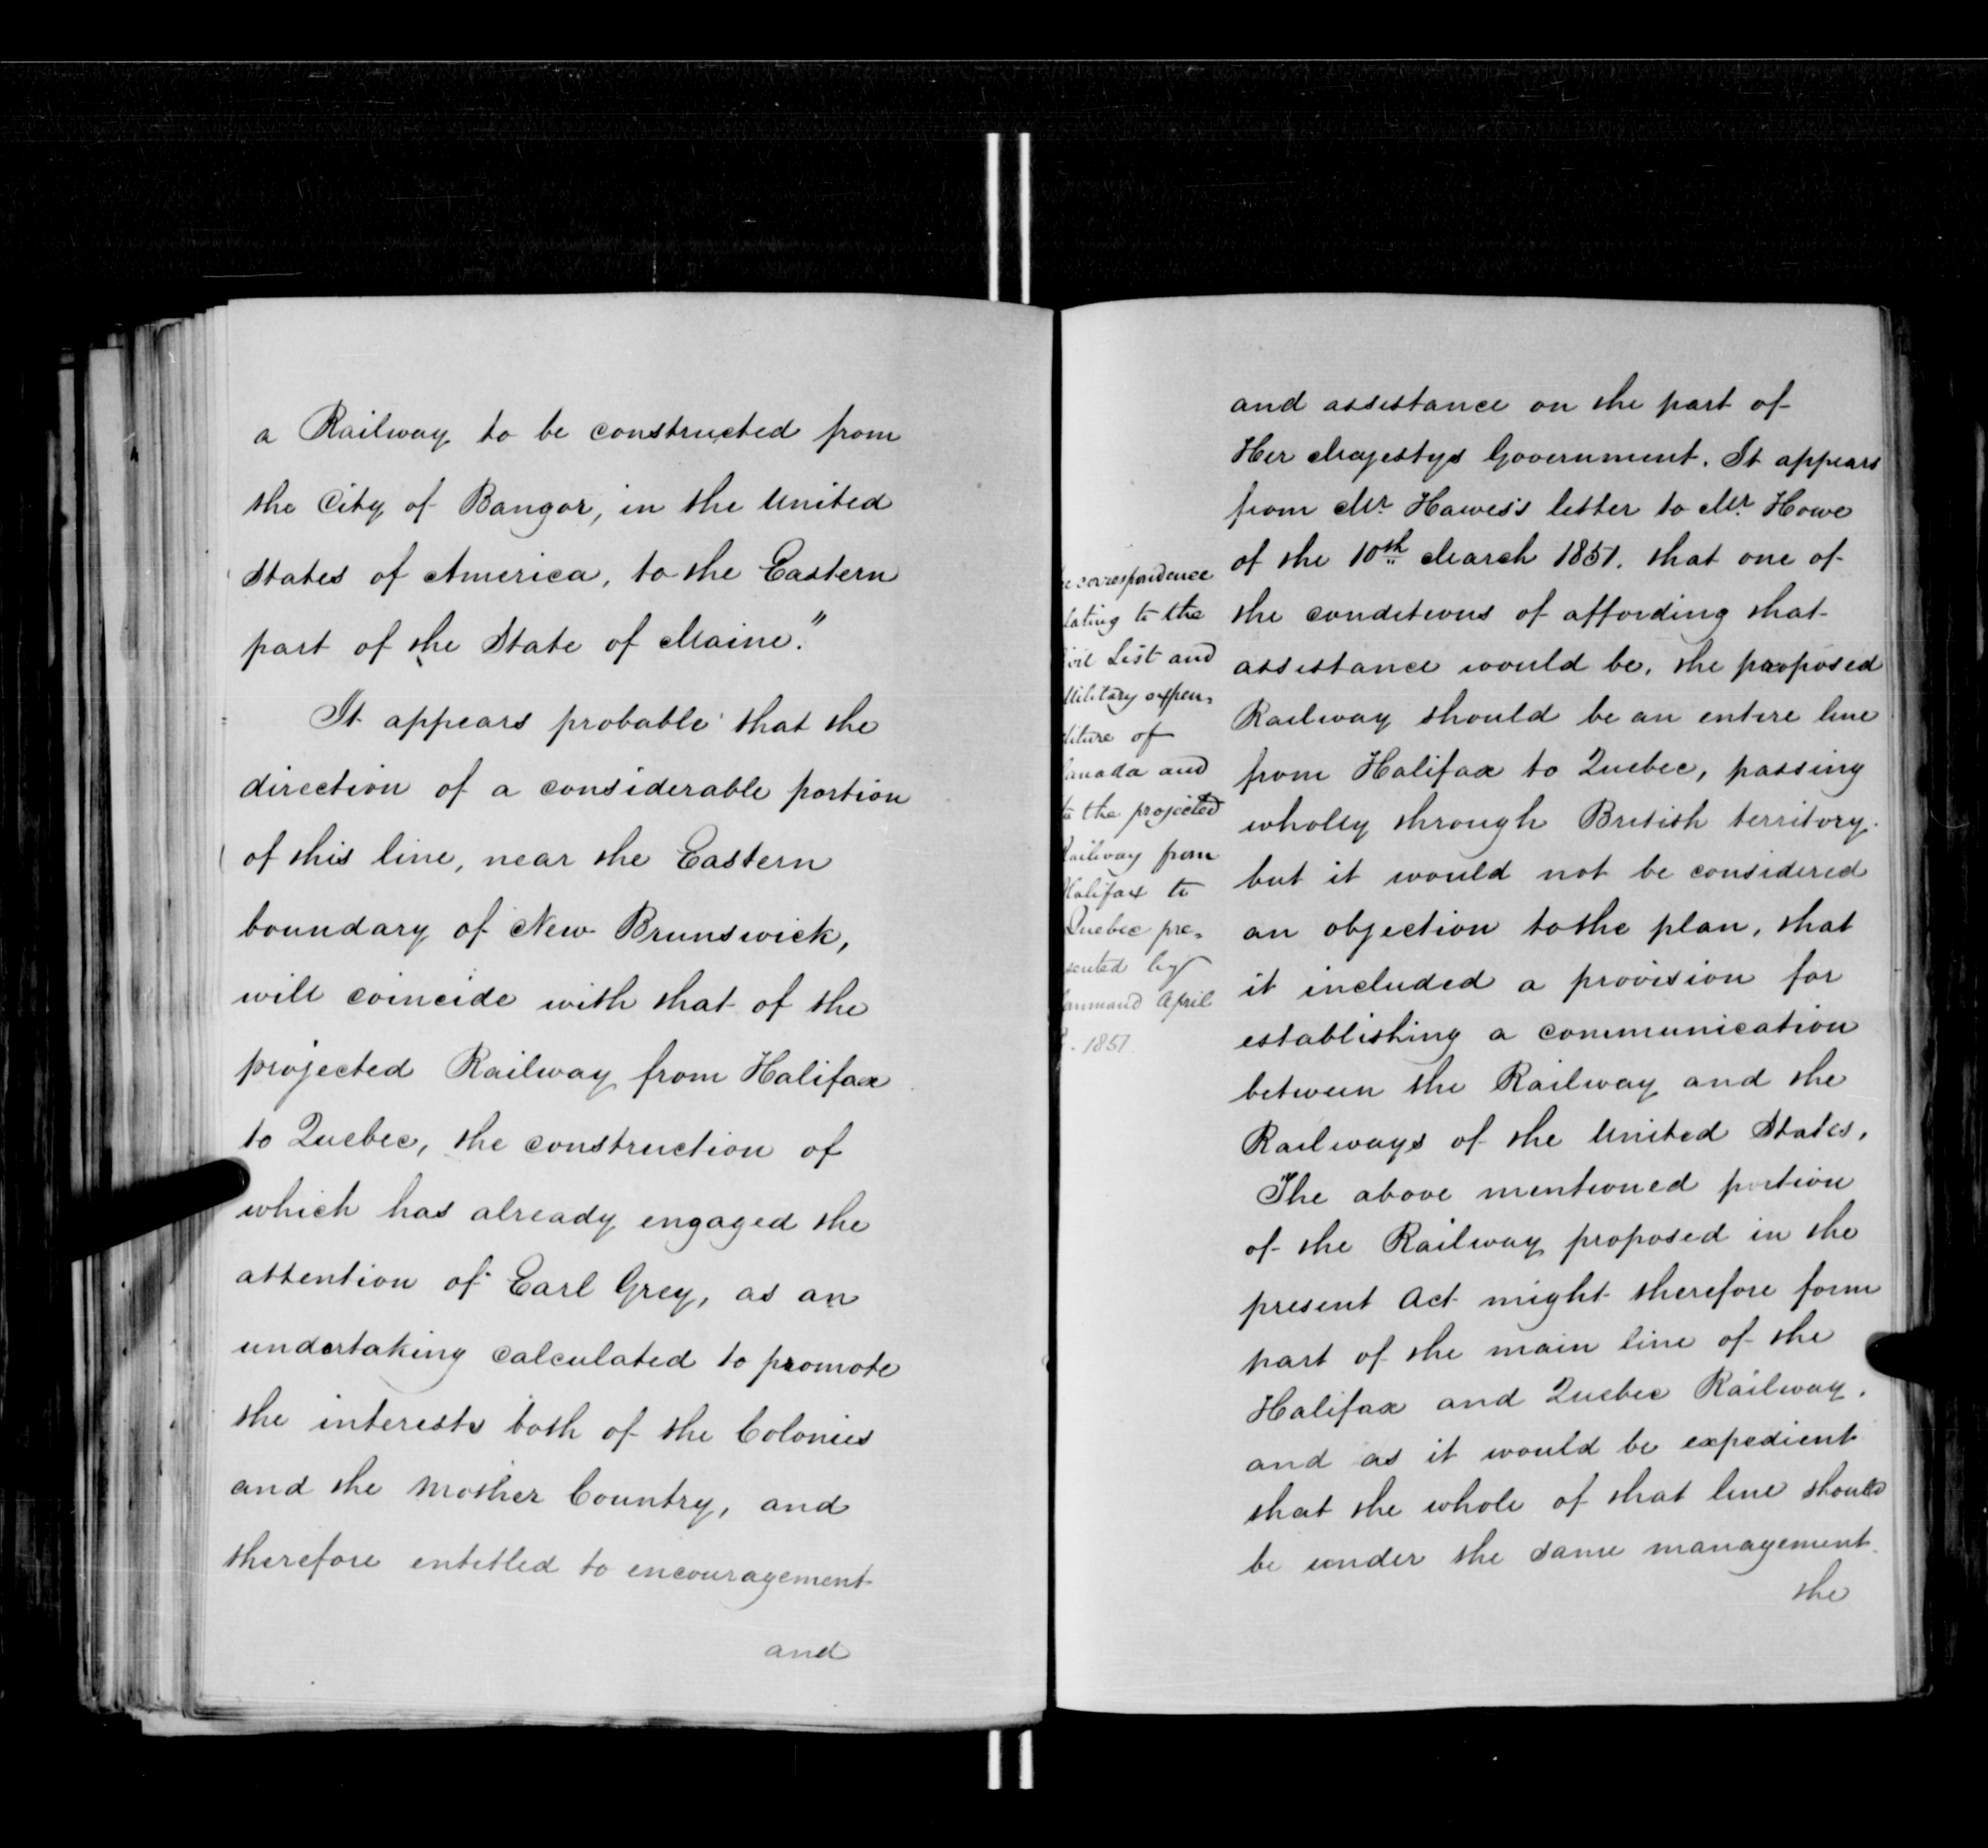 a Railway to be constructed from
the City of Bangor, in the United
States of America, to the Eastern
part of the State of Maine."
It appears probable that the
direction of a considerable portion
of this line, near the Eastern
boundary of New Brunswick,
will coincide with that of the
projected Railway from Halifax
to Quebec, the construction of
which has already engaged the
attention of Earl Grey, as an
undertaking calculated to promote
the interests both of the Colonies
and the Mother Country, and
therefore entitled to encouragement
and
correspondence
lating to the
vil List and
Military expen,
diture of
Canada and
to the projected
Railway from
Halifax to
Quebec pre,
sented by
Command April
1851
and assistance on the part of
Her Majestys Government. It appears
from Mr. Hawes's letter to Mr. Howe
of the 10th March 1851. that one of
the conditions of affording that
assistance would be, the proposed
Railway should be an entire line
from Halifax to Quebec, passing
wholly through British territory.
but it would not be considered
an objection to the plan, that
it included a provision for
establishing a communication
between the Railway and the
Railways of the United States.
The above mentioned portion
of the Railway proposed in the
present Act might therefore form
part of the main line of the
Halifax and Quebec Railway.
and as it would be expedient
that the whole of that line should
be under the same management.
the